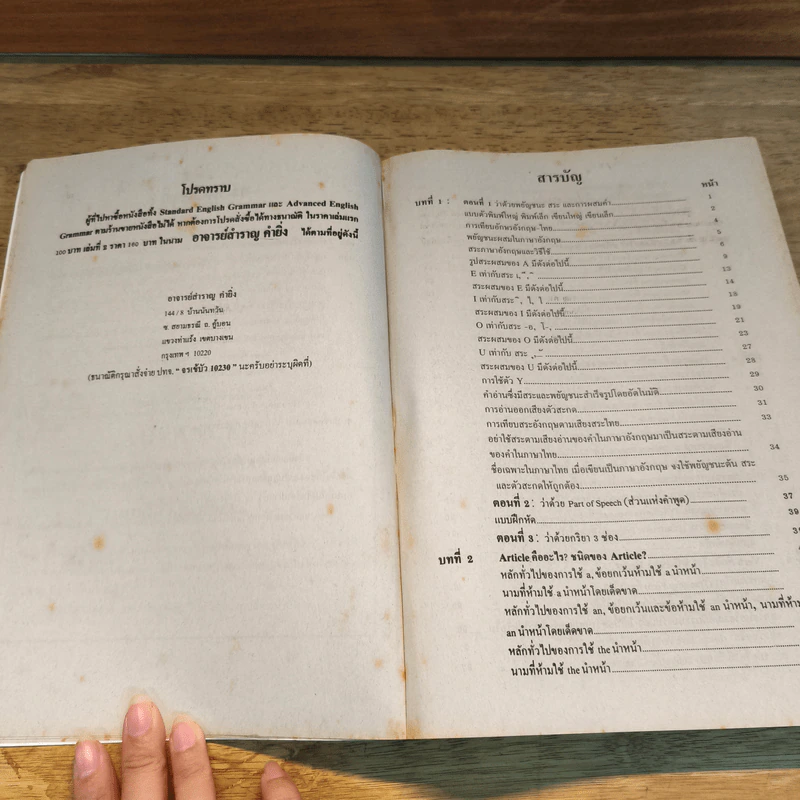 โปรดทราบ
ผู้ที่ไปหาซื้อหนังสือทั้ง Standard English Grammar และ Advanced English
Grammar ตามร้านขายหนังสือไม่ได้ หากต้องการโปรดสั่งซื้อได้ทางธนาณัติ ในราคาเล่มแรก
100 บาท เล่มที่ 2 ราคา 160 บาท ในนาม อาจารย์สำราญ คำยิ่ง ได้ตามที่อยู่ดังนี้
อาจารย์สำราญ คำยิ่ง
144/8 บ้านนันทวัน
ซ. สยามธรณี ถ. คู้บอน
แขวงท่าแร้ง เขตบางเขน
กรุงเทพ ฯ 10220
(ธนาณัติกรุณาสั่งจ่าย ปทจ. “ จรเข้บัว 10230 ” นะครับอย่าระบุผิดที่)
สารบัญ
หน้า
บทที่ 1 : ตอนที่ 1 ว่าด้วยพยัญชนะ สระ และการผสมคำ 1
แบบตัวพิมพ์ใหญ่ พิมพ์เล็ก เขียนใหญ่ เขียนเล็ก 2
การเทียบอักษรอังกฤษ-ไทย 4
พยัญชนะผสมในภาษาอังกฤษ 5
สระภาษาอังกฤษและวิธีใช้ 6
รูปสระผสมของ A มีดังต่อไปนี้ 9
E เท่ากับสระ 13
สระผสมของ E มีดังต่อไปนี้ 14
I เท่ากับสระ 18
สระผสมของ I มีดังต่อไปนี้ 19
O เท่ากับสระ -อ, โ-, 21
สระผสมของ O มีดังต่อไปนี้ 23
U เท่ากับ สระ 27
สระผสมของ U มีดังต่อไปนี้ 28
การใช้ตัว Y 29
คำอ่านซึ่งมีสระและพยัญชนะสำเร็จรูปโดยอัตโนมัติ 30
การอ่านออกเสียงตัวสะกด 31
การเทียบสระอังกฤษตามเสียงสระไทย 33
อย่าใช้สระตามเสียงอ่านของคำในภาษาอังกฤษมาเป็นสระตามเสียงอ่าน
ของคำในภาษาไทย 34
ชื่อเฉพาะในภาษาไทย เมื่อเขียนเป็นภาษาอังกฤษ จงใช้พยัญชนะต้น สระ
และตัวสะกดให้ถูกต้อง 35
ตอนที่ 2 : ว่าด้วย Part of Speech (ส่วนแห่งคำพูด) 37
แบบฝึกหัด 39
ตอนที่ 3 : ว่าด้วยกริยา 3 ช่อง
บทที่ 2 Article คืออะไร? ชนิดของ Article?
หลักทั่วไปของการใช้ a, ข้อยกเว้นห้ามใช้ a นำหน้า
นามที่ห้ามใช้ a นำหน้าโดยเด็ดขาด
หลักทั่วไปของการใช้ an, ข้อยกเว้นและข้อห้ามใช้ an นำหน้า, นามที่ห้าม
an นำหน้าโดยเด็ดขาด
หลักทั่วไปของการใช้ the นำหน้า
นามที่ห้ามใช้ the นำหน้า